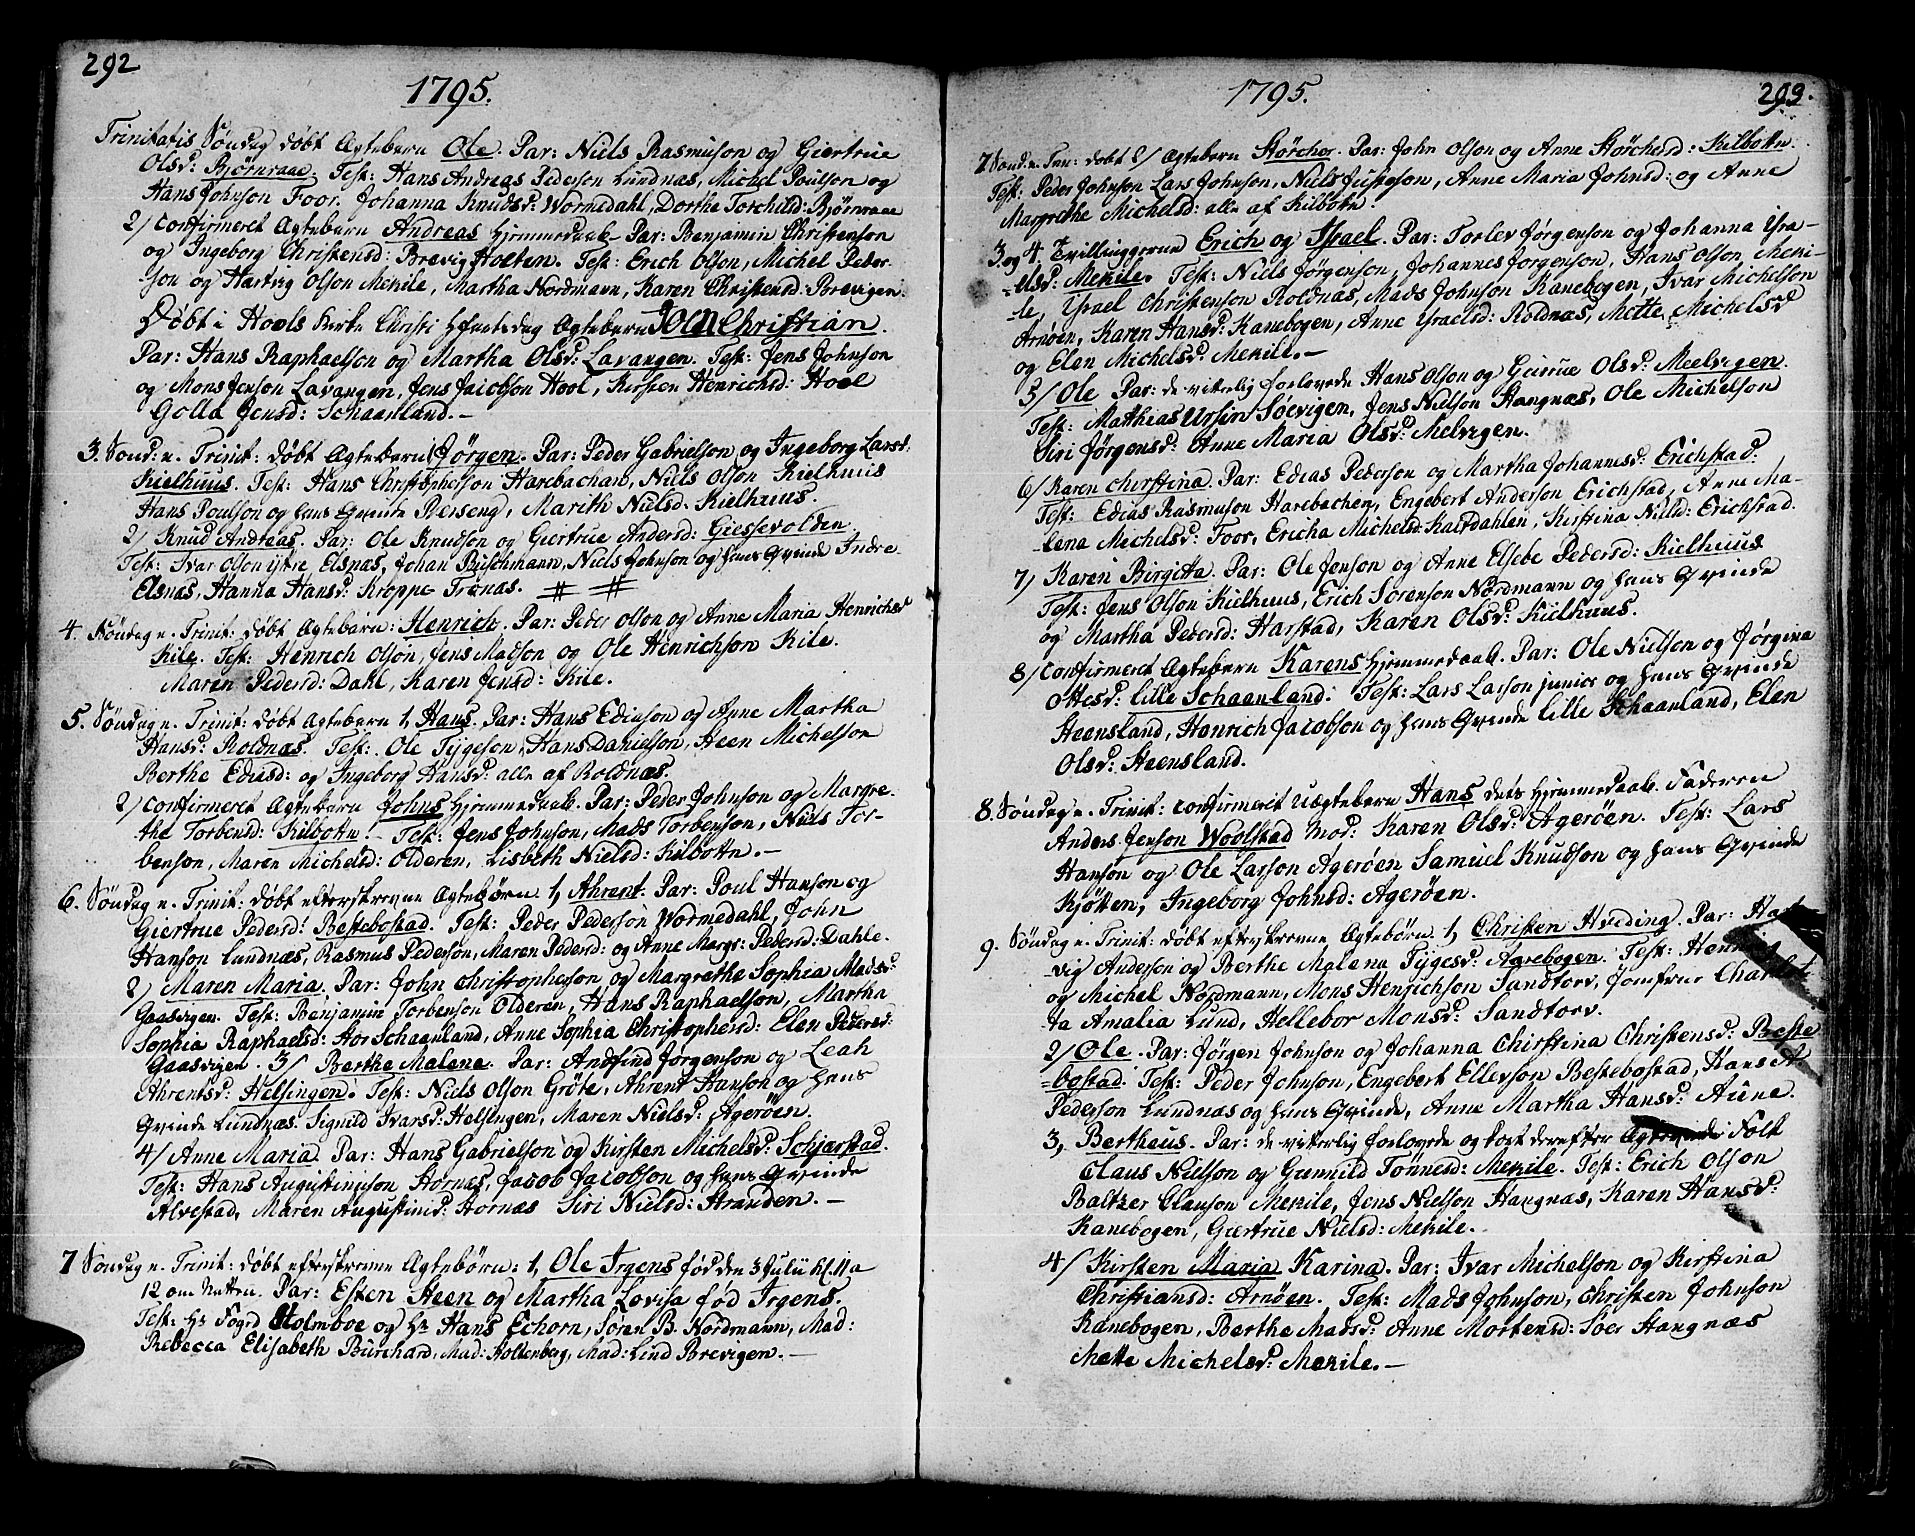 292
1795.
Trinitatis Søndag døbt Ægtebarn Ole. Par: Niels Rasmuson og Giertrue
Olsd: Bjørnraae. Test: Hans Andreas Pederson Lundnæs, Michel Poulson og
Hans Johnson Foor. Johanna Knudsd: Wormedahl, Dorthe Torchild: Bjørnraae
2/ Confirmeret Ægtebarn Andreas Hjemmedaab Par: Benjamin Christenson
og Ingeborg Christensd: Brevig Holten. Test: Erich Olson, Michel Peder
son og Hartvig Olson Mekile, Martha Nordmann, Karen Christensd: Brevigen.
Døbt i Hools Kirke Christi Hfartsdag Ægtebarn John Christian.
Par: Hans Raphaelson og Martha Olsd: Lavangen. Test: Jens Johnson
og Mons Jenson Lavangen, Jens Jacobson Hool, Kirsten Henrichsd: Hool
Golla Jensd: Schaanland.-
3. Sønd: e. Trinit: døbt Ægtebarn Jørgen. Par: Peder Gabrielson og Ingeborg Larsd:
Kielhuus. Test: Hans Christopherson Harebachan, Niels Olson Kielhuus
Hans Poulson og hans Qvinde Berseng, Marith Nielsd: Kielhuus.
2/ Knud Andreas. Par: Ole Knudson og Giertrue Andersd: Giessevolden.
Test: Ivar Olson ystre Elsnæs, Johan Buschmann, Niels Johnson og hans Qvinde Indre
Elsnæs, Hanna Hansd: Kroppe Trønæs. # #
4. Søndag e. Trinit: døbt Ægtebarn: Henrich. Par: Peder Olson og Anne Maria Henrichsd
Kile. Test: Henrich Olson, Jens Madson og Ole Henrichson Kile.
Maren Pedersd: Dahl, Karen Jensd: Kile.
5. Søndag e. Trinit: døbt Ægtebarn 1, Hans. Par: Hans Ediason og Anne Martha
Hansd: Roldnæs. Test: Ole Tygeson, Hans Danielson, Steen Michelson
Berthe Ediasd: og Ingeborg Hansd: alle af Roldnæs.
2/ Confirmeret Ægtebarn Johns Hjemmedaab. Par: Peder Johnson og Margre-
the Torbensd: Kilbottn. - Test: Jens Johnson, Mads Torbenson, Niels Tor-
benson, Maren Michelsd: Olderen, Lisbeth Nielsd: Kilbottn.-
6. Søndag e. Trinit: døbt efterskrevne Ægtebørn. 1, Ahrent. Par: Poul Hanson og
Giertrue Pedersd: Bestebostad. Test: Peder Pederson Wormedahl, John
Hanson Lundnæs, Rasmus Pederson, Maren Pedersd: og Anne Margr: Pedersd: Dahle.
2/ Maren Maria. Par: John Christopherson og Margrethe Sophia Madsd:
Gaasvigen. Test: Benjamin Torbenson Olderen, Hans Raphaelson, Martha
Sophia Raphaelsd: Stor Schaanland, Anne Sophia Christophersd: Elen Pedersd:
Gaasvigen. 3/ Berthe Malene. Par: Andfind Jørgenson og Leah
Ahrentsd: Helsingen. Test: Niels Olson Grøte, Ahrent Hanson og hans
Qvinde Lundnæs. Signild Ivarsd: Helsingen, Maren Nielsd: Agerøen.
4/ Anne Maria. Par: Hans Gabrielson og Kirsten Michelsd: Schjærstad.
Test: Hans Augustinuson Hornæs, Jacob Jacobson og hans Qvinde
Alvestad, Maren Augustinid: Hornæs Siri Nielsd: Stranden.-
7 Søndag e. Trinit: døbt efterskrevne Ægtebørn: 1, Ole Irgens fød den 3 Julii kl. 11 a
12 om Natten. Par: Esten Steen og Martha Lovisa fød Irgens.
Test: Hr Fogd Holmboe og Hr Hans Echorn, Søren B. Nordmann, Mad:
Rebecca Elisabeth Burchard, Mad: Holtenberg, Mad: Lind Brevigen.-
1795.
293.
7 Sønd: e. Trin: døbt 2/ Ægtebarn Størcher. Par: John Olson og Anne Størchersd: Kilbottn.
Test: Peder Johnson Lars Johnson, Niels Justeson, Anne Maria Johnsd: og Anne
Margrethe Michelsd: alle af Kilbottn.
3 og 4. Tvillingerne Erich og Israel. Par: Torlev Jørgenson og Johanna Isra-
elsd: Mekile. Test: Niels Jørgenson, Johannes Jørgenson, Hans Olson Meki-
le, Israel Christenson Roldnæs, Mads Johnson Kanebogen, Ivar Michelson
Arnøen, Karen Hansd: Kanebogen, Anne Israelsd: Roldnæs, Mette Michelsd
og Elen Michelsd: Mekile.-
5/ Ole Par: de vitterlig forlovede Hans Olson og Geirue Olsd: Meelvigen.
Test: Matthias Ursin Søevigen, Jens Nielson Stangnæs, Ole Michelson
Siri Jørgensd: Anne Maria Olsd: Melvigen.
6/ Karen Chirstina. Par: Edias Pederson og Martha Johannesd: Erichstad.
Test: Edias Rasmuson Harebachen, Engebert Anderson Erichstad, Anne Ma-
lena Michelsd: Foor, Ericha Michelsd: Kasfdahlen, Kirstina Nield: Erichstad.
7/ Karen Birgitta. Par: Ole Jenson og Anne Elsebe Pedersd: Kielhuus
Test: Jens Olson Kielhuus, Erich Sørenson Nordmann og hans Qvinde
og Martha Pedersd: Harstad, Karen Olsd: Kielhuus.
8/ Confirmeret Ægtebarn Karens Hjemmedaab. Par: Ole Nielson og Jørgina
Ottesd: Lille Schaanland. Test: Lars Larson junior og hans Qvinde
Steensland, Henrich Jacobson og hans Qvinde Lille Schaanland, Elen
Olsd: Steensland.
8. Søndag e. Trinit: confirmeret Uægtebarn Hans dets Hjemmedaab. Faderen
Anders Jenson Woolstad Mod: Karen Olsd: Agerøen. Test: Lars
Hanson og Ole Larson Agerøen Samuel Knudson og hans Qvinde
Kjøtten, Ingeborg Johnsd: Agerøen.
9. Søndag e. Trinit: døbt efterskrevne Ægtebørn. 1, Christen Hveding. Par: Hart
vig Anderson og Berthe Malena Tygesd: Aarebogen. Test: Henrich
og Michel Nordmann, Mons Henrichson Sandtorv, Jomfrue Charlot
ta Amalia Lund, Hellebor Monsd: Sandtorv.
2/ Ole. Par: Jørgen Johnson og Johanna Chirstina Christensd: Beste
bostad. Test: Peder Johnson, Engebert Ellevson Bestebostad, Hans A
Pederson Lundnæs og hans Qvinde, Anne Martha Hansd: Aune.
3, Bertheus. Par: de vitterlig forlovede og kort derefter Ægteviede Folk
Claus Nielson og Gunnild Tønnesd: Mekile. Test: Erich Olson
Baltzer Clauson Mekile, Jens Nielson Stangnæs, Karen Hansd:
Kanebogen, Giertrue Nielsd: Mekile.
4/ Kirsten Maria Karina. Par: Ivar Michelson og Kirstina
Christiansd: Arnøen. Test: Mads Johnson, Christen Johnson
Kanebogen, Berthe Madsd: Anne Mortensd: Søer Stangnæs
Mette Michelsd: Mekile.-